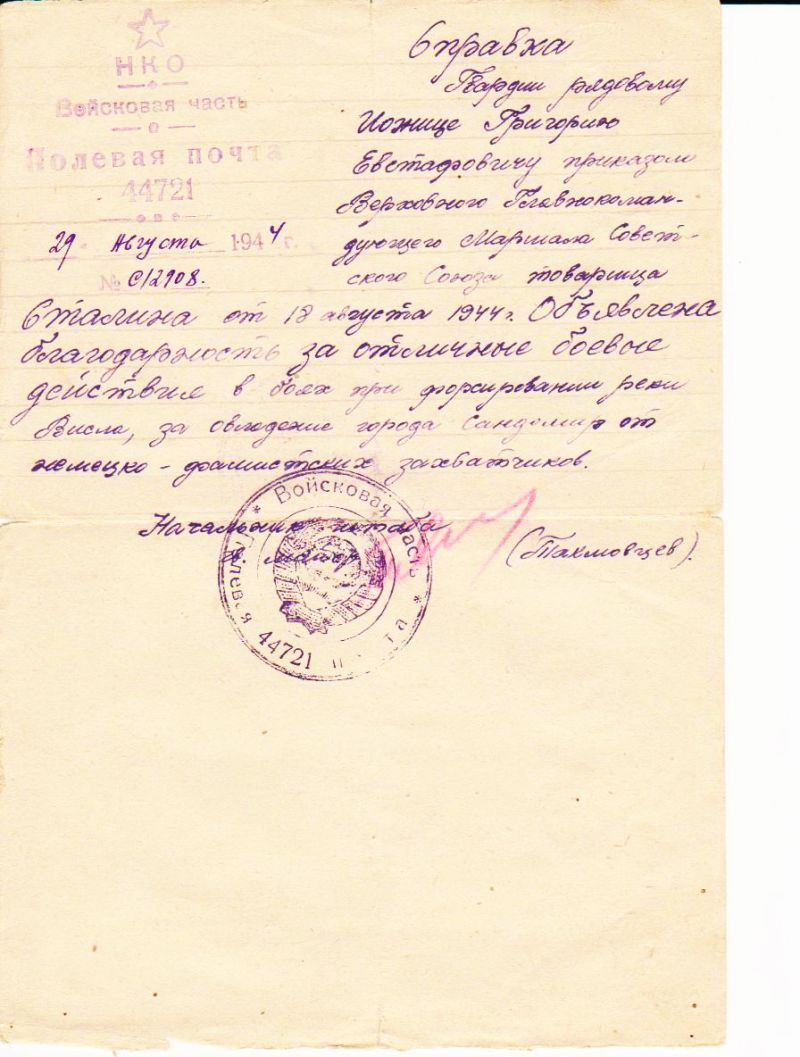 НКО
Войсковая часть
Полевая почта
44721
29 Августа 1944 г.
№ С/2908.
Справка
Гвардии рядовому
Иожице Григорию
Евстафовичу приказом
Верховного Главнокоман-
дующего Маршала Совет-
ского Союза товарища
Сталина от 18 августа 1944 г. Объявлена
благодарность за отличные боевые
действия в боях при форсировании реки
Висла, за овладение города Сандомир от
немецко - фашистских захватчиков.
Начальник штаба
(Пахмовцев).
* Войсковая часть *
Полевая 44721 почта